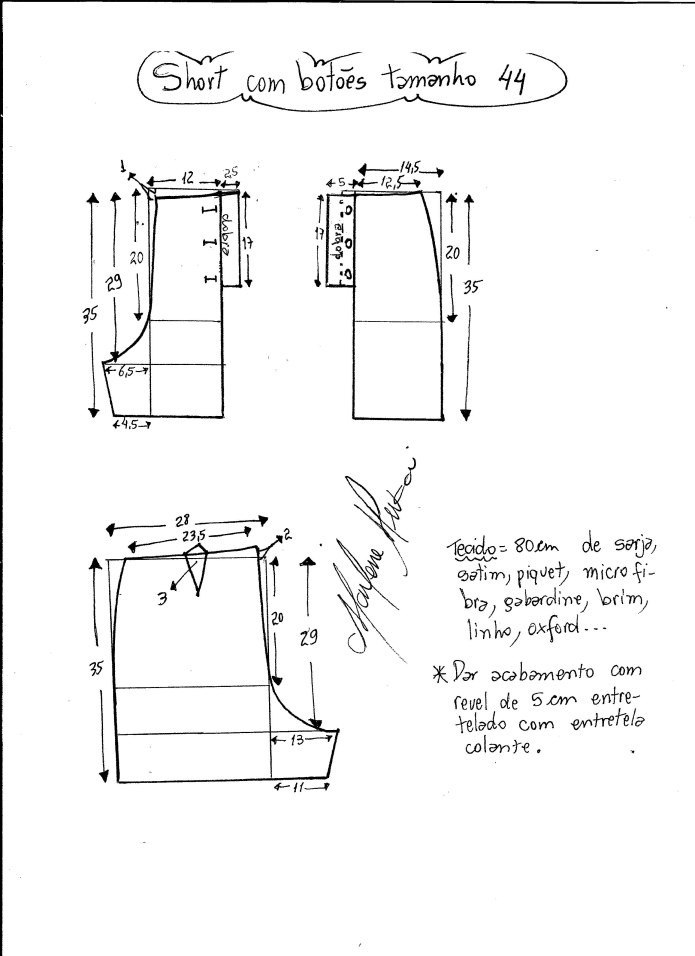 Short com botões tamanho 44
1
12
2,5
35
29
20
dobra
17
6,5
4,5
14,5
5
12,5
17
dobra
20
35
28
23,5
2
3
35
20
29
13
11
Marlene
Tecido = 80cm de sarja,
satim, piquet, microfi-
bra, gabardine, brim,
linho, oxford...
* Dar acabamento com
revel de 5 cm entre-
telado com entretela
colante.